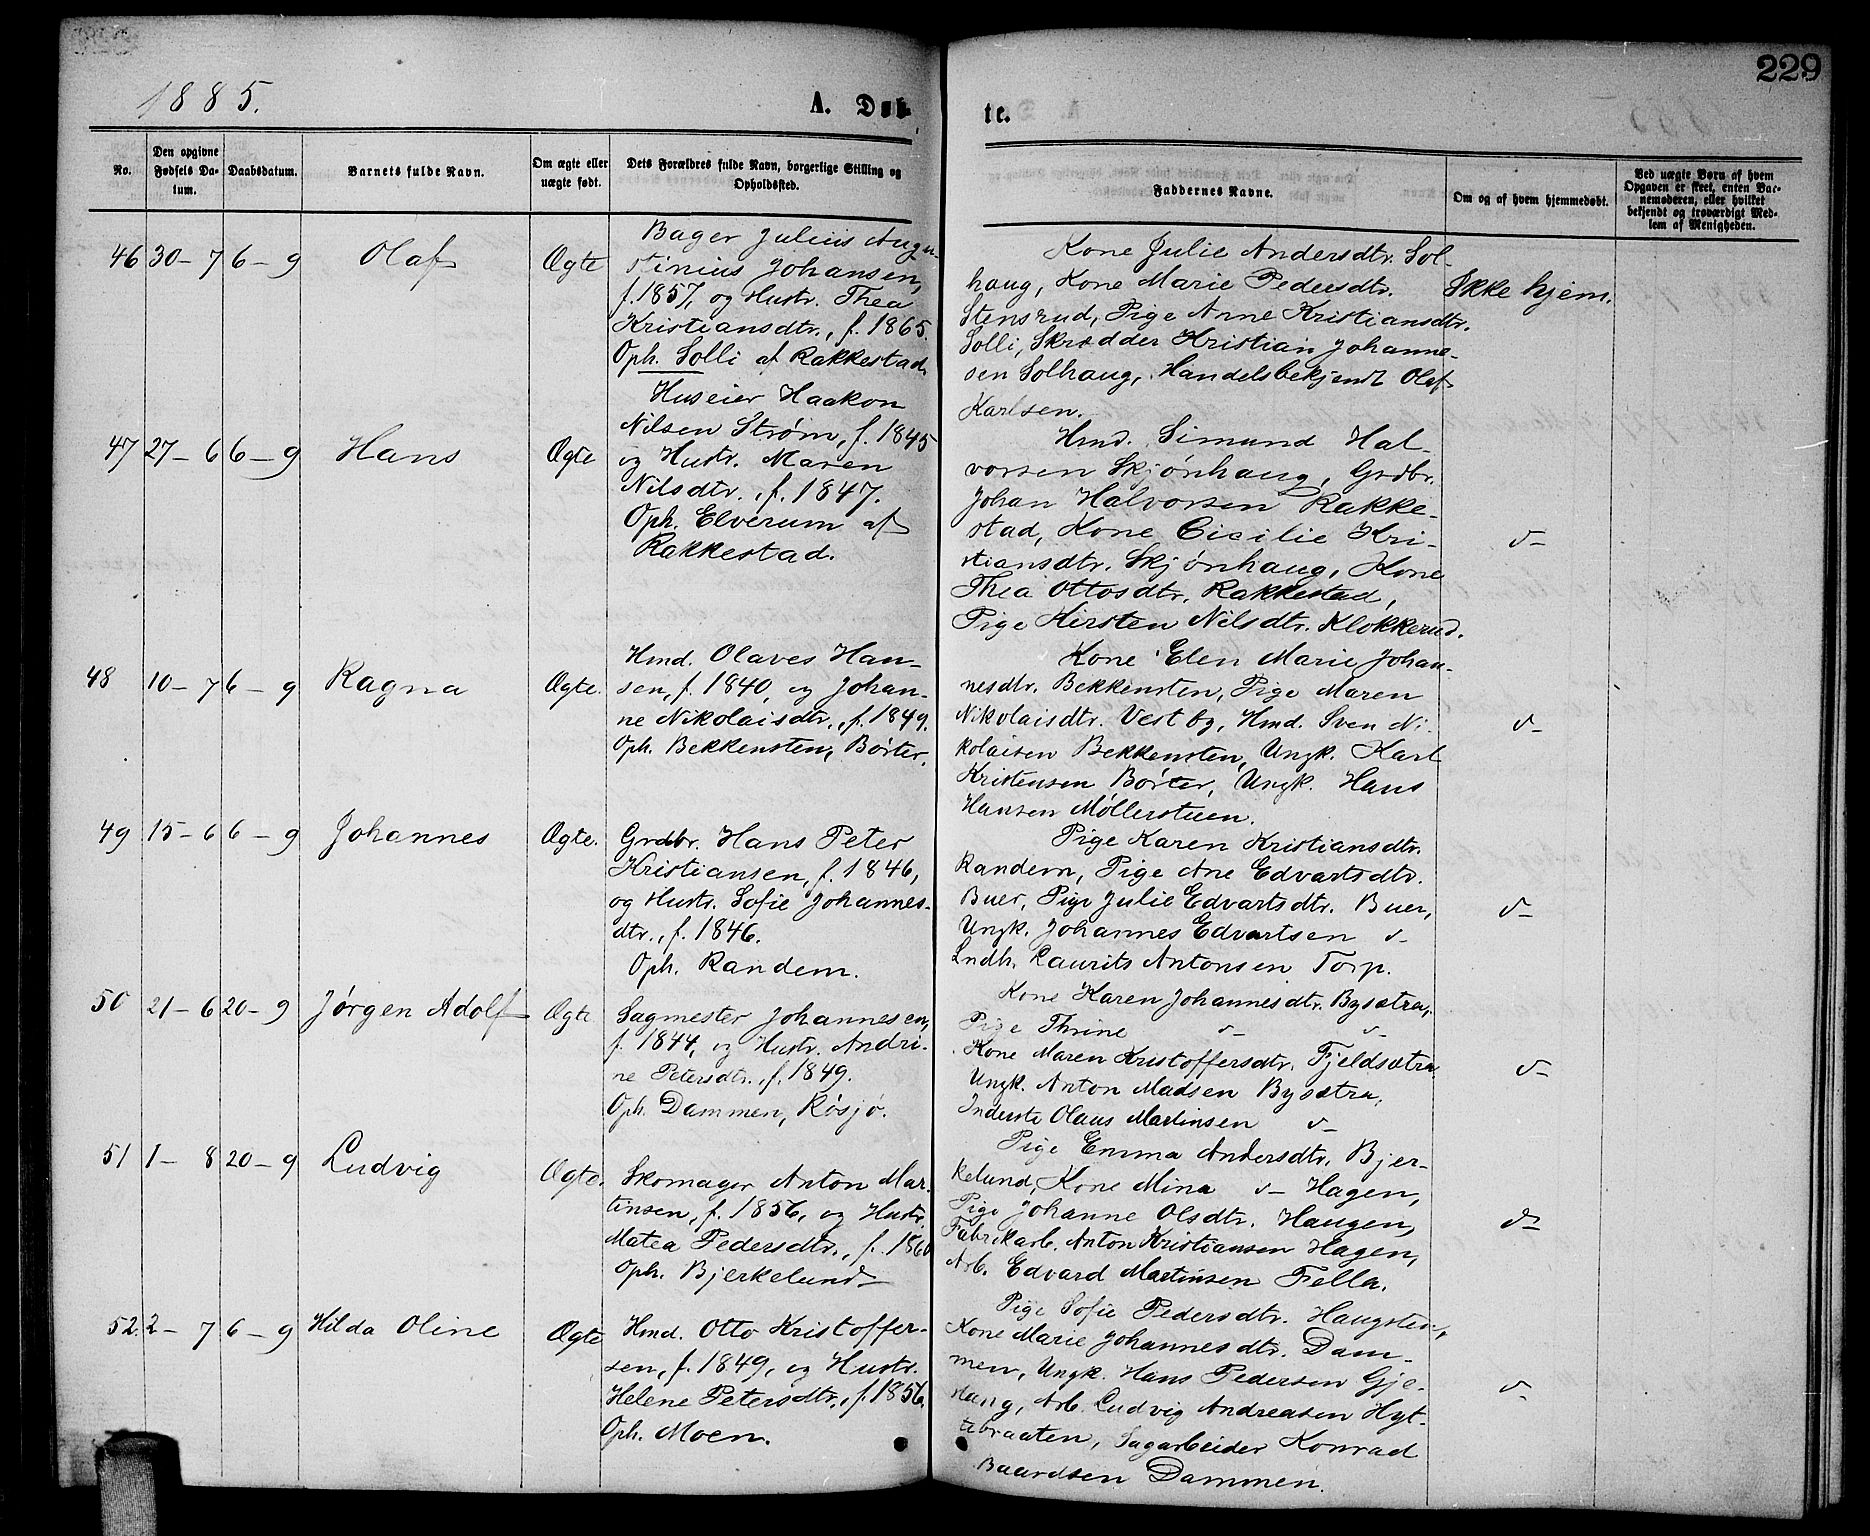 229
1885.
A. Døb
te.
No.
Den opgivne Fødsels Datum.
Daabsdatum.
Barnets fulde Navn.
Om ægte eller uægte født.
Dets Forældres fulde Navn, borgerlige Stilling og Opholdssted.
Faddernes Navne.
Om og af hvem hjemmedøbt.
Ved uægte Børn af hvem Opgaven er skeet, enten Barnemoderen, eller hvilket bekjendt og troværdigt Medlem af Menigheden.
46 30-7 6-9 Olaf Ægte
Bager Julius Augu-
stinius Johansen,
f. 1857, og Hustr. Thea
Kristiansdtr., f. 1865.
Oph. Solli af Rakkestad.
Kone Julie Andersdtr. Sol-
haug, Kone Marie Pedersdtr.
Stensrud, Pige Anne Kristiansdtr.
Solli, Skrædder Kristian Johanne-
sen Solhaug, Handelsbekjendt Olaf
Karlsen.
Ikke hjem.
47 27-6 6-9 Hans Ægte
Huseier Haakon
Nilsen Strøm, f. 1845
og Hustr. Maren
Nilsdtr., f. 1847.
Oph. Elverum af
Rakkestad.
Hmd. Simund Hal-
vorsen Skjønhaug, Grdbr.
Johan Halvorsen Rakke-
stad, Kone Cicilie Kri-
stiansdtr. Skjønhaug, Kone
Thea Ottosdtr. Rakkestad,
Pige Kirsten Nilsdtr. Klokkerud.
d-
48 10-7 6-9 Ragna Ægte.
Hmd. Olaves Han-
sen, f. 1840, og Johan-
ne Nikolaisdtr., f. 1849.
Oph. Bekkensten, Børter.
Kone Elen Marie Johan-
nesdtr. Bekkensten, Pige Maren
Nikolaisdtr. Vestby, Hmd. Sven Ni-
kolaisen Bekkensten, Ungk. Karl
Kristensen Børter, Ungk. Hans
Hansen Møllerstuen.
d-
49 15-6 6-9 Johannes Ægte.
Grdbr. Hans Peter
Kristiansen, f. 1846,
og Hustr. Sofie Johannes-
dtr., f. 1846.
Oph. Randem.
Pige Karen Kristiansdtr.
Randem, Pige Ane Edvartsdtr.
Buer, Pige Julie Edvartsdtr. Buer,
Ungk. Johannes Edvartsen d-
Lndh. Laurits Antonsen Torp.
d-
50 21-6 20-9 Jørgen Adolf Ægte
Sagmester Johannesen,
f. 1844, og Hustr. Andri-
ne Petersdtr., f. 1849.
Oph. Dammen, Røsjø.
Kone Karen Johannesdtr. Bysætra,
Pige Thrine d- d-
Kone Maren Kristoffersdtr. Fjeldsætra.
Ungk. Anton Madsen Bysætra,
Inderste Olaus Martinsen d-
d-
51 1-8 20-9 Ludvig Ægte.
Skomager Anton Mar-
tinsen, f. 1856, og Hustr.
Matea Pedersdtr., f. 1860
Oph. Bjerkelund
Pige Emma Andersdtr. Bjer-
kelund, Kone Mina d- Hagen,
Pige Johanne Olsdtr. Haugen,
Fabrikarb. Anton Kristiansen Hagen,
Arb. Edvard Martinsen Fella.
d-
52. 2-7 6-9 Hilda Oline Ægte
Hmd. Otto Kristoffer-
sen, f. 1849, og Hustr.
Helene Petersdtr., f. 1856.
Oph. Moen.
Pige Sofie Pedersdtr. Haugsten,
Kone Marie Johannesdtr. Dam-
men, Ungk. Hans Pedersen Gje-
stang, Arb. Ludvig Andreasen Hyt-
tebraaten, Sagarbeider Konrad
Baardsen Dammen.
d-